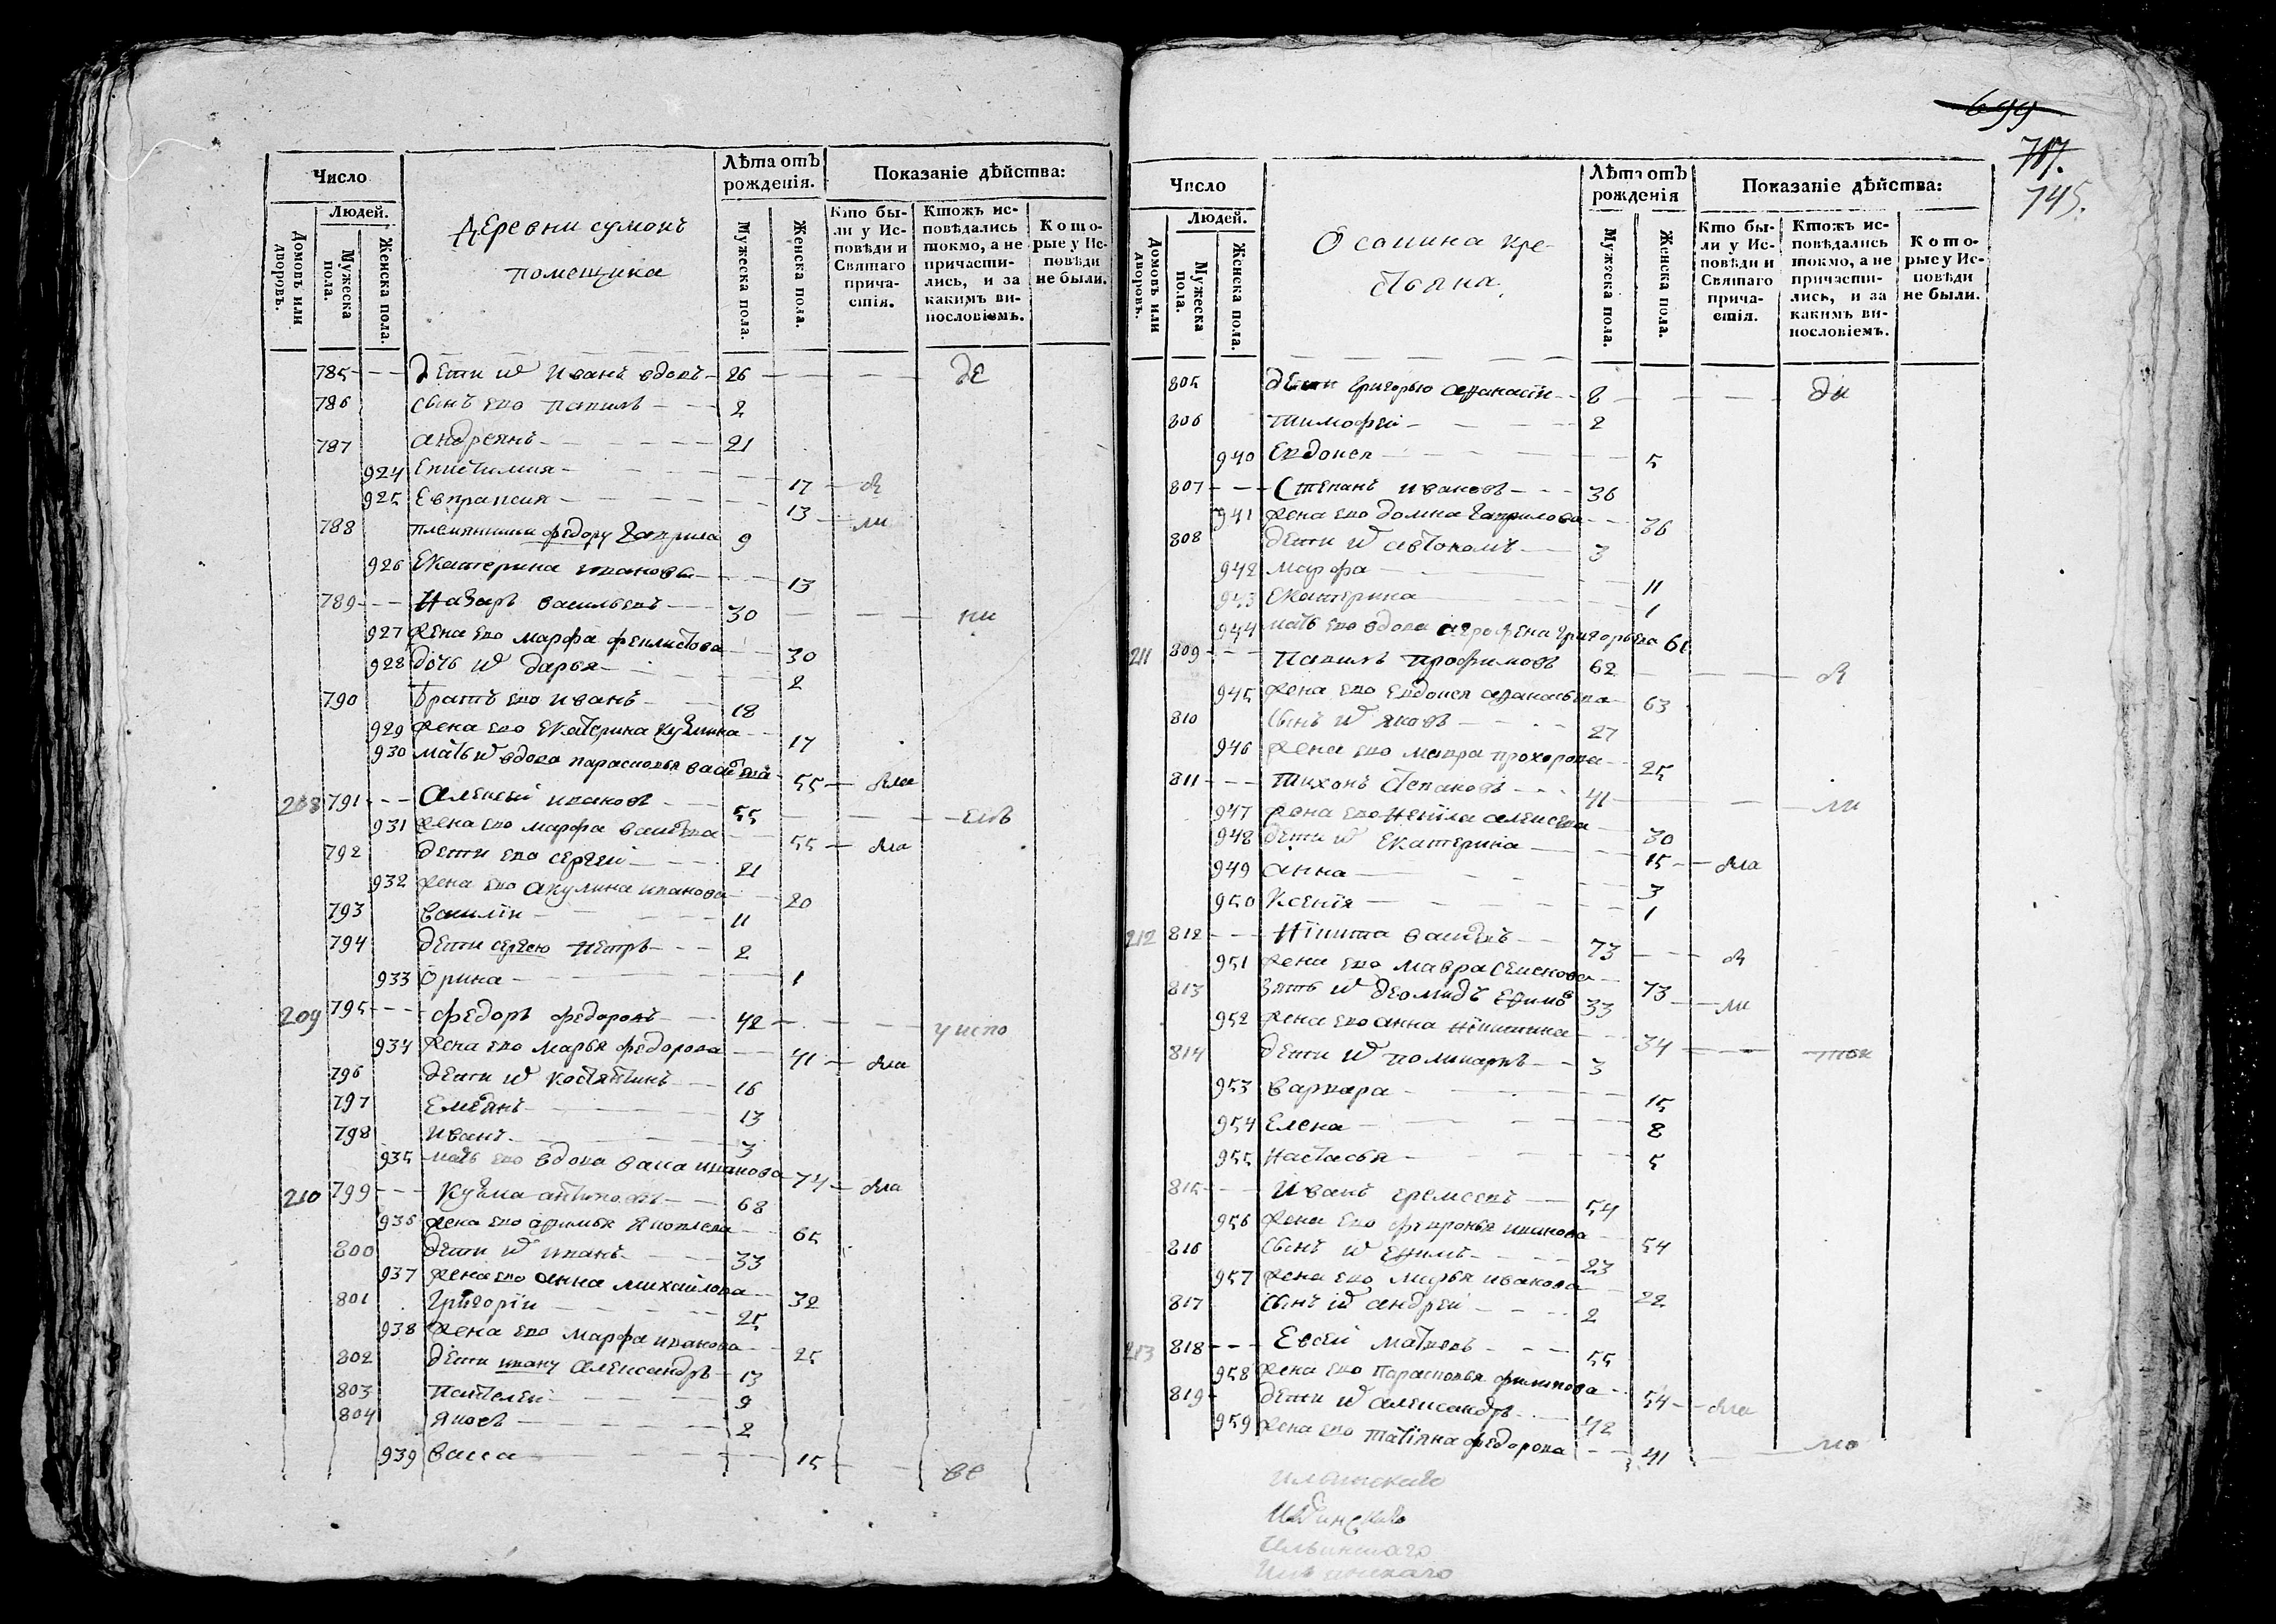 Число
Людей.
Домовъ или дворовъ.
Мужеска пола.
Женска пола.
Деревни сумокъ
помещика
Лѣта отъ рожденія.
Мужеска пола.
Женска пола.
Показаніе дѣйства:
Кто бы-
ли у Ис-
повѣди и
Святаго
прича-
стія.
Ктожъ ис-
повѣдались
токмо, а не
причасти-
лись, и за
какимъ ви-
нословіемъ.
Кото-
рые у Ис-
повѣди
не были.
785 - - - дети ѿ Иванъ вдовъ - 26 - - - - де
786 сынъ его павилъ - - 2
787 андреянъ - - - 21
924 Епистимия - - - 17 -
925 Евпраксия - - - 13 - ли
788 племянники федору Гаврила 9
926 Екатерина иванова - - - 13
789 - - - Назаръ васильевъ - - 30 - - - ни
927 жена его марфа феклистова - - 30
928 дочь ѿ дарья - - - 2
790 братъ его иванъ - - 18
929 жена его Екатерина кузмина - - 17
930 мать ѿ вдова парасковья васильева - 55 - была
208 791 - - - Алексей иванов - - 55 - - - -
931 жена его марфа васильева - - 55 - была
792 дети его сергей - - - 21
932 жена его акулина иванова - - 20
793 василiи - - - 11
794 дети сергею петръ - - - 2
933 Орина - - - 1
209 795 - - - федоръ федоровъ - - 42 - - - - у испо
934 жена его марья федорова - - 41 - была
796 дети ѿ костянтинъ - - 16
797 Емелянъ - - - 13
798 Иванъ - - - 3
935 мать его вдова васса иванова - 74 - была
210 799 - - - Кузма антиповъ - - 68
936 жена его Яковлева - - 65
800 дети ѿ иванъ - - - 33
937 жена его анна михайлова - - 32
801 Григорiи - - - 25
938 жена его марфа иванова - - 25
802 дети ивану александръ - 13
803 пантелей - - - 9
804 яковъ - - - 2
939 васса - - - 15 - - ве
699
717.
745.
Число
Людей.
Домовъ или дворовъ.
Мужеска пола.
Женска пола.
Осокина кре-
стьяна
Лѣта отъ рожденія
Мужеска пола.
Женска пола.
Показаніе дѣйства:
Кто бы-
ли у Ис-
повѣди и
Святаго
прича-
стія.
Ктожъ ис-
повѣдались
токмо, а не
причасти-
лись, и за
какимъ ви-
нословіемъ.
Кото-
рые у Ис-
повѣди
не были.
805 дети григорью - - 8 - - - -
806 тимофей - - - 2
940 Евдокея - - - 5
807 - - - Степанъ ивановъ - - - 36
941 жена его домна гаврилова - - - 36
808 дети ѿ автономъ - - 3
942 марфа - - - 11
943 екатерина - - - 1
944 мать его вдова агрофена григорьева 61
211 809 - - - павилъ трофимовъ 62 - - -
945 жена его евдокея афанасьева - 63
810 сынъ ѿ яковъ - - - 27
946 жена его мавра прохорова - - 25
811 - - - тихонъ степановъ - - - 41 - - - ли
947 жена его алексеева - - 30
948 дети ѿ екатерина - - 15 - - была
949 анна - - - 3
950 Ксенiя - - - 1
212 812 - - - Никита васильевъ - - 73 - - -
951 жена его мавра - - 73
813 зять ѿ деомидъ ефимов 33 - - ли
952 жена его анна никитина - - 34 - - - ток
814 дети ѿ поликарпъ - - 3
953 варвара - - - 15
954 Елена - - - 8
955 настасья - - - 5
815 - - - Иванъ еремеевъ - - 54
956 жена его февронья иванова - - 54
816 сынъ ѿ ефимъ - - - 23
957 жена его марья иванова - - 22
817 сынъ ѿ андрей - - - 2
213 818 - - - Евсей матвеевъ - - - 55
958 жена его парасковья филипова - - 54 - - была
819 дети ѿ александръ - - 42
959 жена его татiяна федорова - - 41 - - мо
ильинскаго
Ильинскаго
Ильинскаго
Ильинскаго